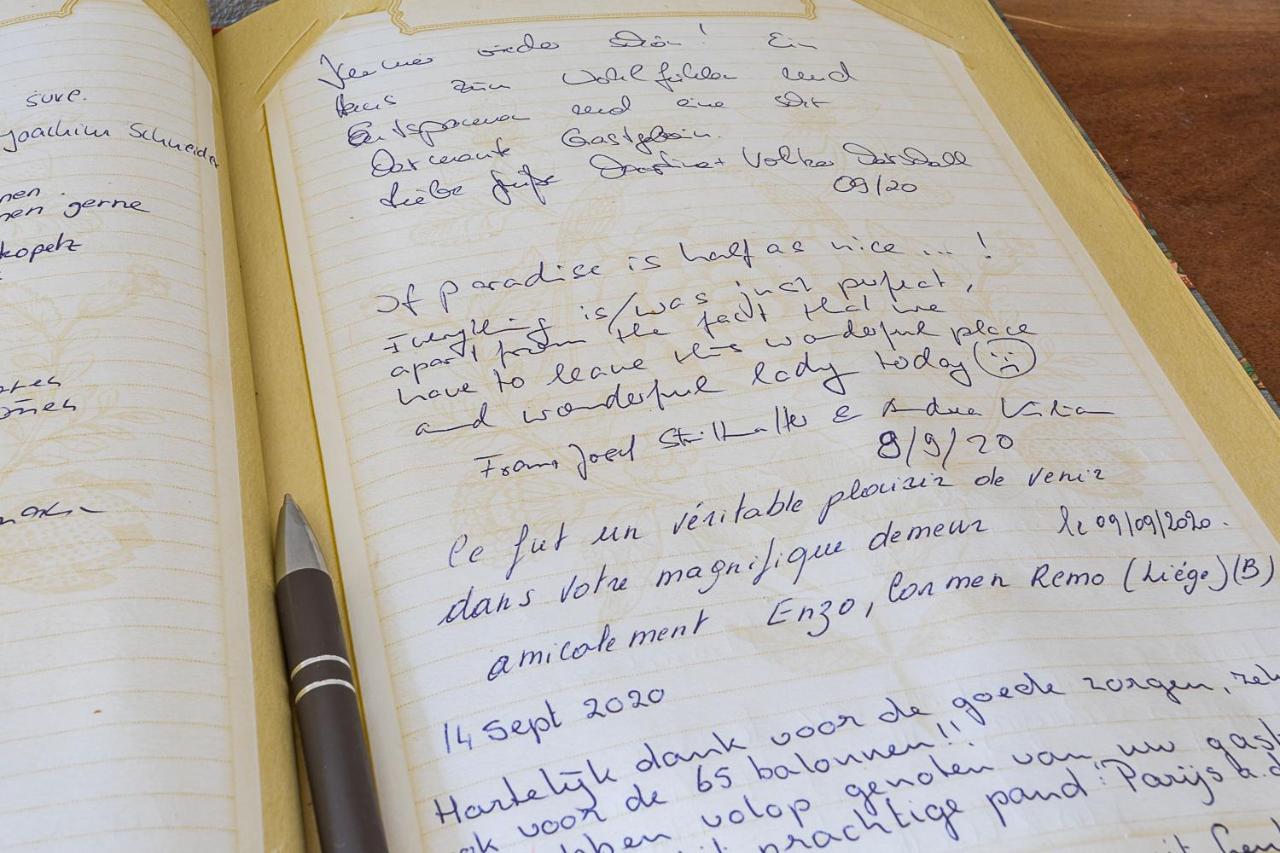 suve.
Joachim Schneider
nen
nen gerne
kopetz
Immer wieder schön! Ein
Haus zum Wohlfühlen und
Entspannen und eine sehr
charmante Gastgeberin.
Liebe Grüße Volker
09/20
If paradise is half as nice ... !
Everything is/was just perfect,
apart from the fact that we
have to leave this wonderful place
and wonderful lady today
Franz Josef &
9/9/20
Ce fut un véritable plaisir de venir
dans votre magnifique demeur le 09/09/2020.
amicalement Enzo, Carmen Remo (Liége) (B)
14 sept 2020
Hartelijk dank voor de goede zorgen,
voor de 65 balonnen!!
volop genoten van uw
prachtige pand: Parijs